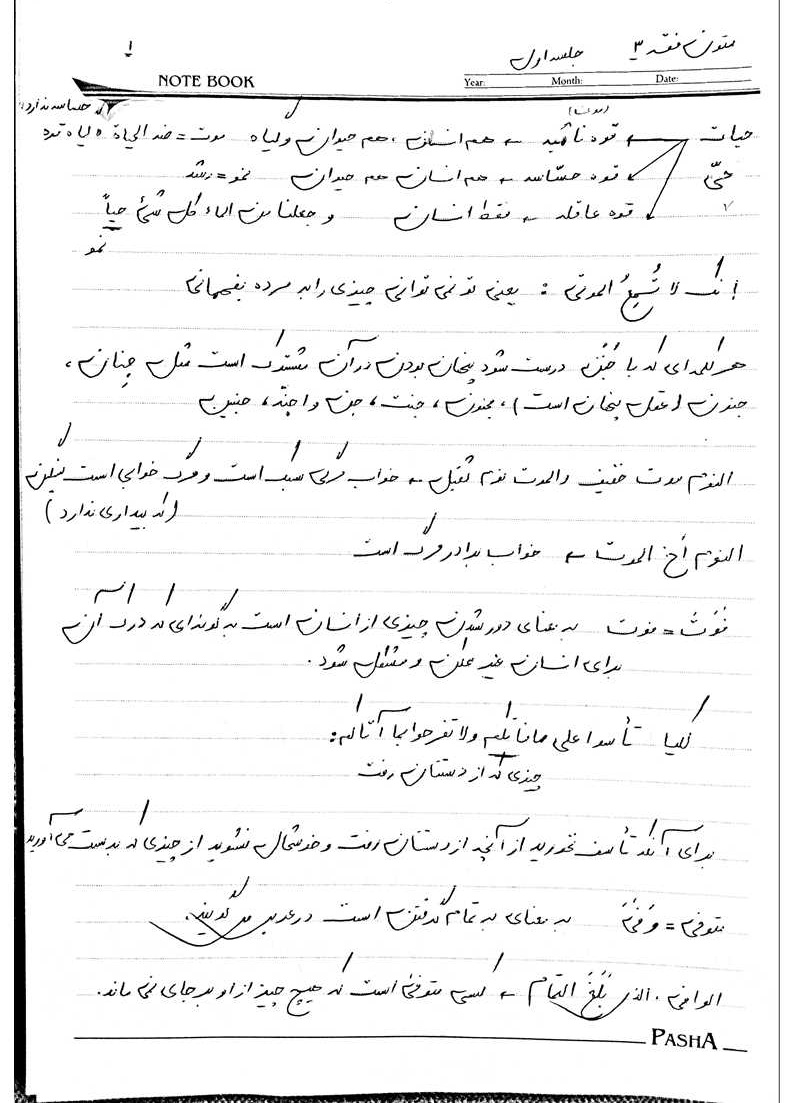 متون فقه ۳ جلسه اول ۱
NOTE BOOK Year: Month: Date:
(رویش)
حساسه ندارد
حیات ← قوه نامیه ← هم انسان، هم حیوان و گیاه موت = ضد الحیاة قوه
حیّ قوه حسّاسه ← هم انسان هم حیوان نمو = رشد
قوه عاقله ← فقط انسان و جعلنا من الماء کل شیء حیاً
نمو
إنک لا تُسمِعُ الموتی : یعنی تو نمی توانی چیزی را به مرده بفهمانی
هر کلمه ای که با جُنَّ درست شود پنهان بودن در آن مشترک است مثل جِنان،
جنون (عقل پنهان است)، مجنون، جنت، جن و اجنّه، جنین
النوم موت خفیف والموت نوم ثقیل ← خواب مرگی سبک است و مرگ خوابی است سنگین
(که بیداری ندارد)
النوم أخ الموت ← خواب برادر مرگ است
فَوْت = فوت به معنای دور شدن چیزی از انسان است به گونه ای که درک آن
برای انسان غیر ممکن و مشکل شود.
لکیلا تأسوا علی ما فاتکم ولا تفرحوا بما آتاکم:
چیزی که از دستتان رفت
برای آنکه تأسف نخورید از آنچه از دستتان رفت و خوشحال نشوید از چیزی که بدست می آورید
متوفی = وَفَیَ به معنای به تمام گرفتن است در عربی می گویند.
الوافی، الذی بَلَغَ التمام ← کسی متوفی است که هیچ چیز از او بر جای نمی ماند.
PASHA